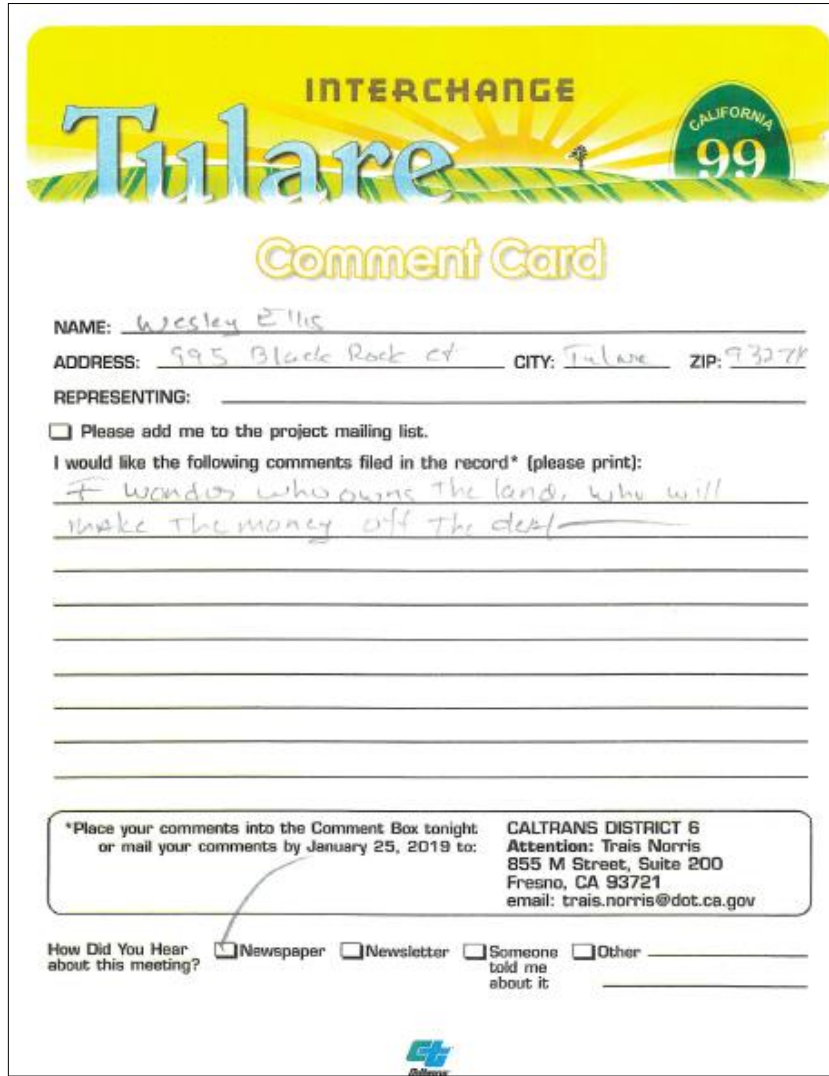 INTERCHANGE
Tulare
CALIFORNIA
99
Comment Card
NAME: Wesley Ellis
ADDRESS: 995 Black Rock ct CITY: Tulare ZIP: 93274
REPRESENTING:
Please add me to the project mailing list.
I would like the following comments filed in the record* (please print):
I wonder who owns The land, who will
make The money off The deal
*Place your comments into the Comment Box tonight
or mail your comments by January 25, 2019 to:
CALTRANS DISTRICT 6
Attention: Trais Norris
855 M Street, Suite 200
Fresno, CA 93721
email: trais.norris@dot.ca.gov
How Did You Hear
about this meeting?
Newspaper
Newsletter
Someone
told me
about it
Other
Caltrans